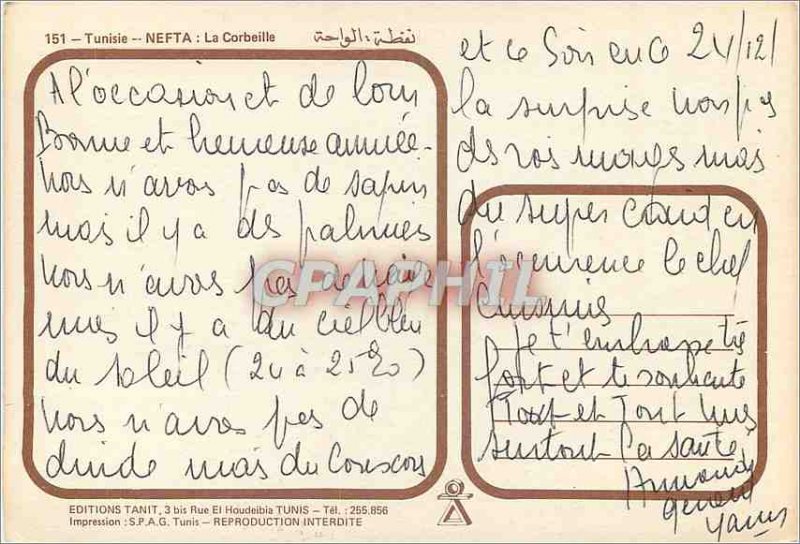 151 – Tunisie – NEFTA : La Corbeille نفطة : الواحة
A l'occasion et de loin
Bonne et heureuse année.
nous n'avons pas de sapin
mais il y a des palmiers
nous n'avons pas de
mais il y a du ciel bleu
du soleil (24 à 25°
nous n'avons pas de
dinde mais du Couscous
et ce soir en ce 24/12/
la surprise non pas
des rois mages mais
du super en
l'ocurrence le chef
cuisinier
je t'embrasse très
fort et te souhaite
Tout et Tout mes
surtout la santé,
Gérard
Yanis
CPAPHIL
EDITIONS TANIT, 3 bis Rue El Houdeibia TUNIS – Tél. : 255.856
Impression : S.P.A.G. Tunis – REPRODUCTION INTERDITE